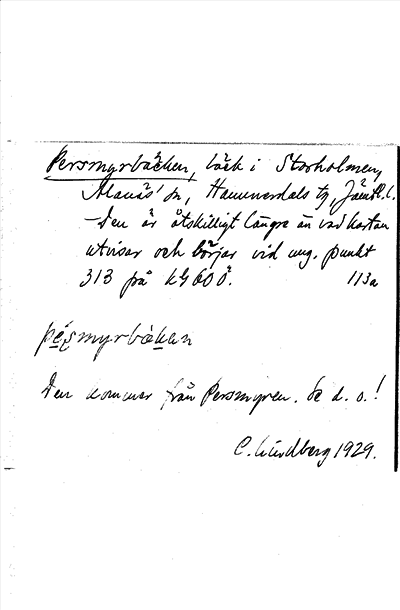 Persmyrbäcken, bäck i Storholmen,
Alanäs' sn, Hammerdals tg, Jämtl. l.
– Den är åtskilligt längre än vad kartan
utvisar och börjar vid ung. punkt
313 på kG60Ö. 113a
pèsmyrbäkan
Den kommer från Persmyren. Se d. o.!
C. Lindberg 1929.